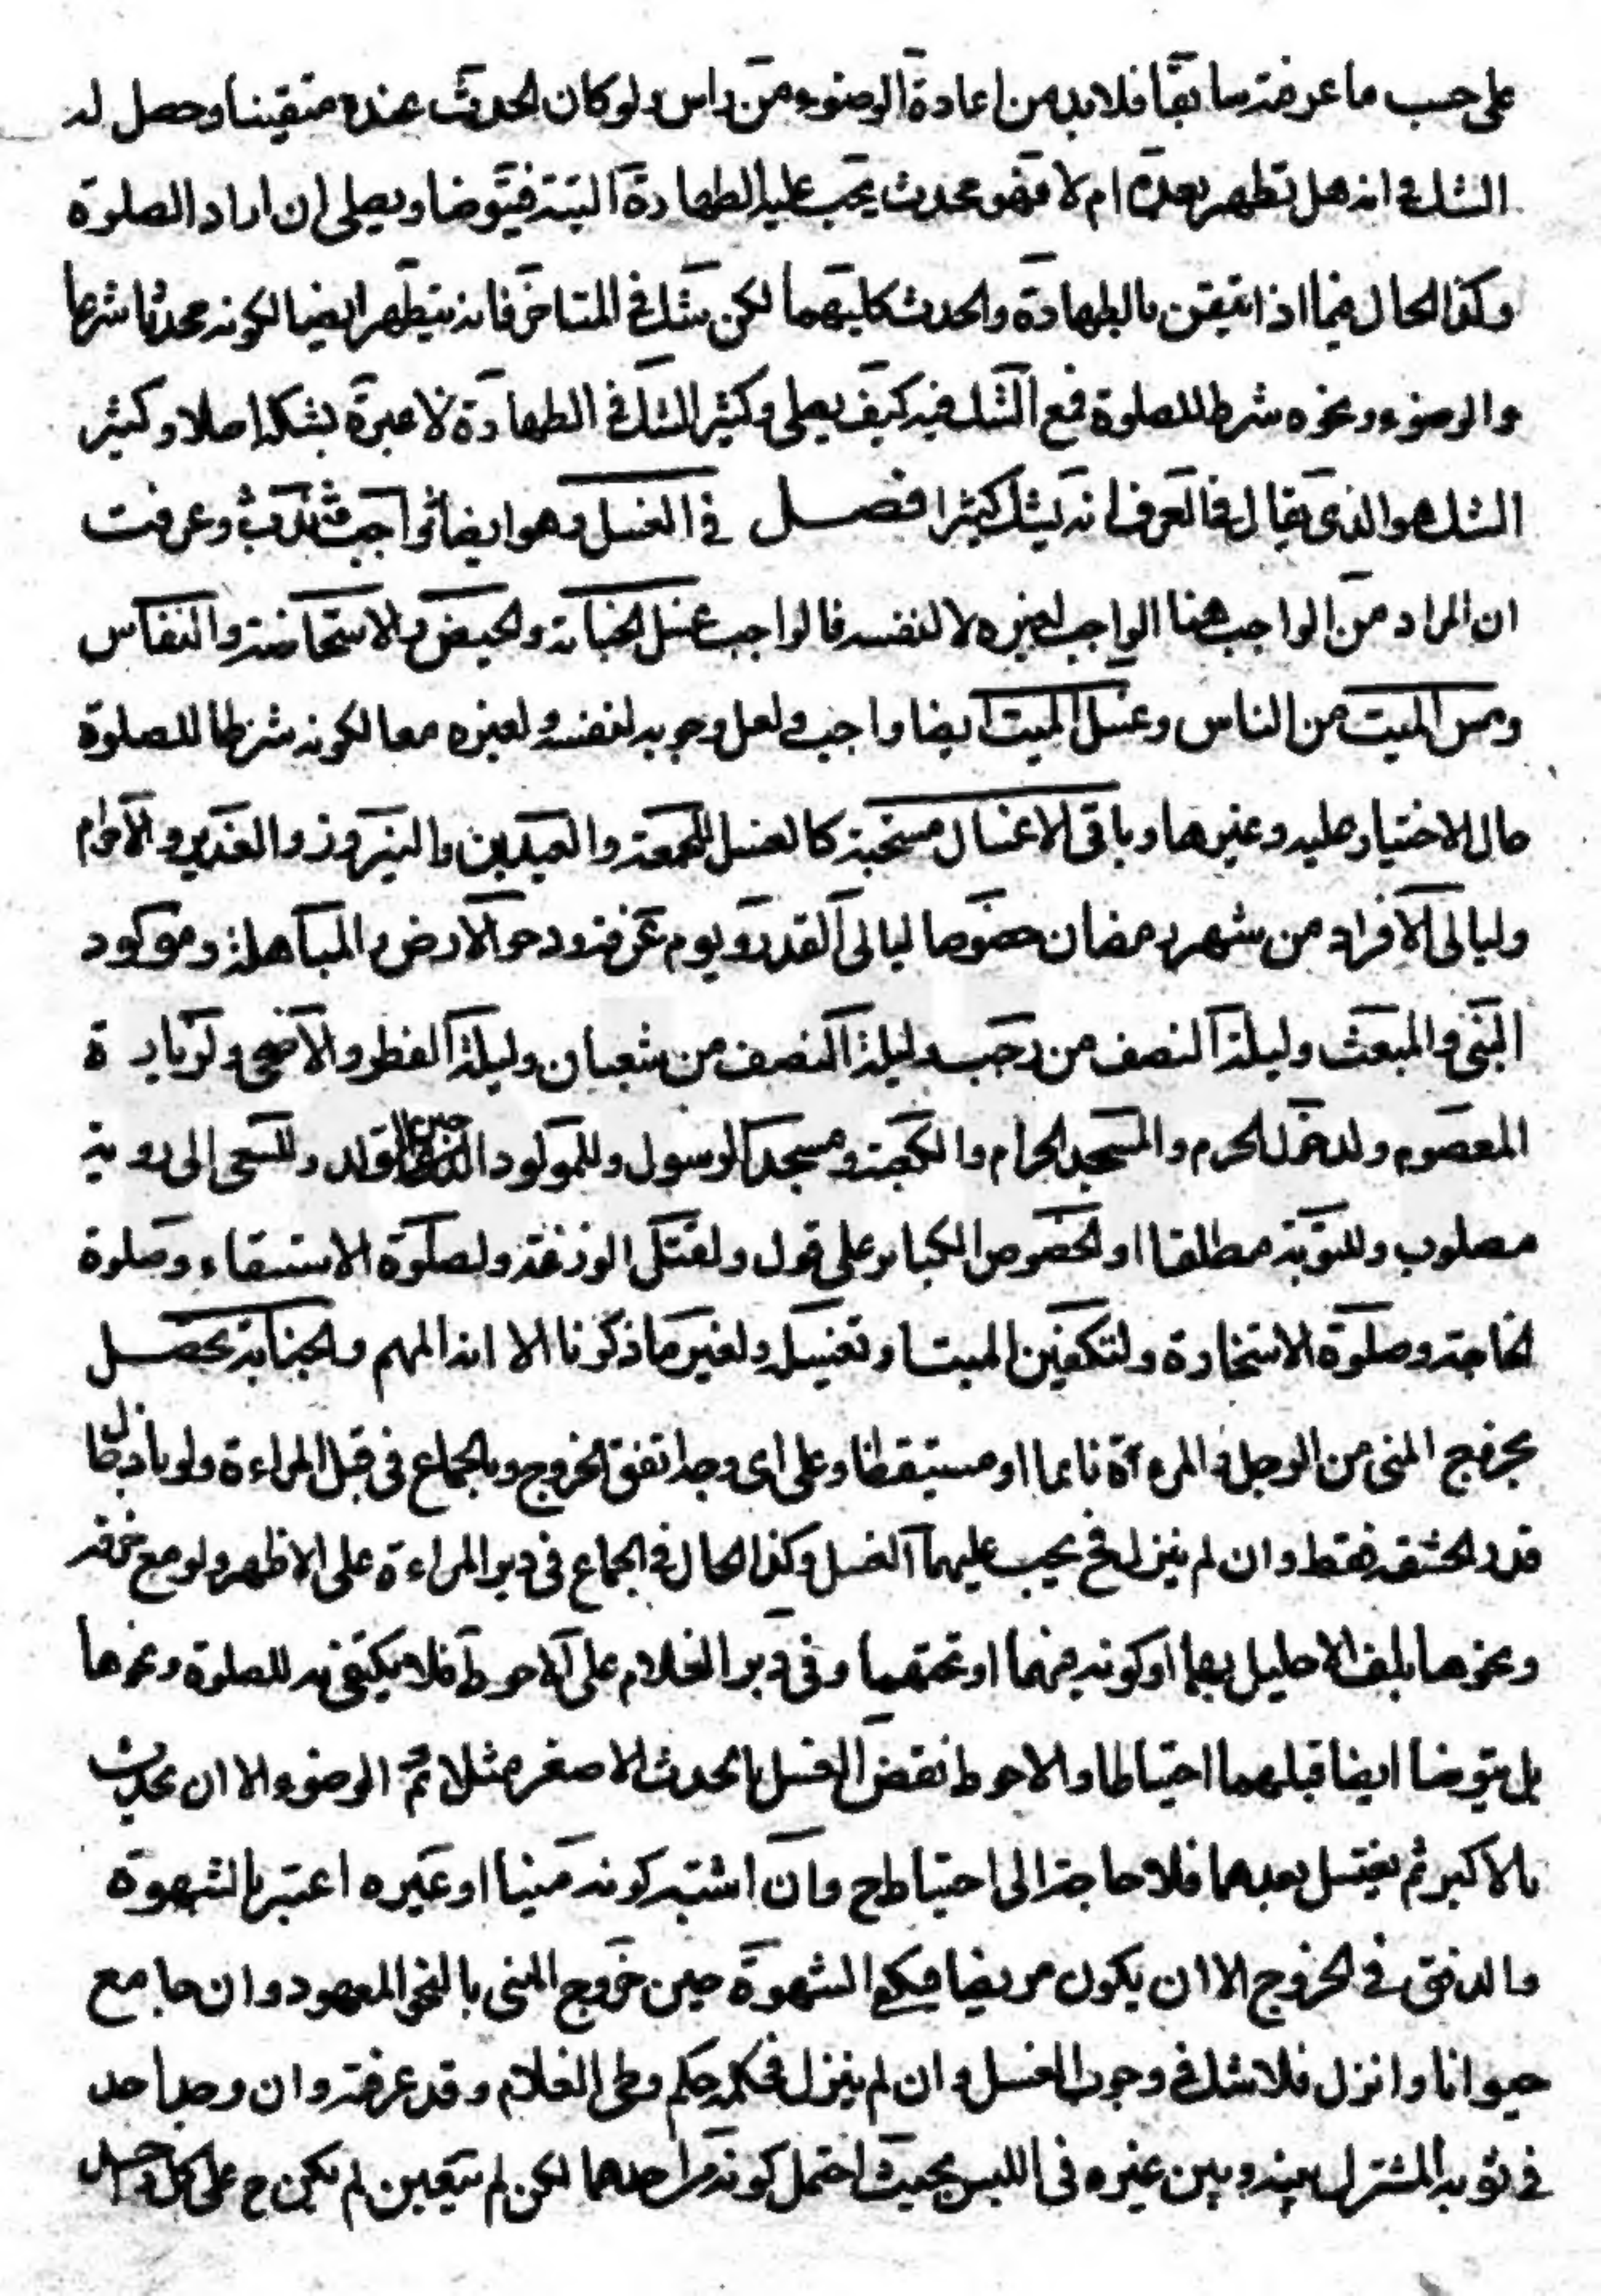 على حسب ما عرفته سابقا فلابد من اعادة الوضوء من راس ولو كان الحدث عنده متيقنا وحصل له
الشك في انه هل تطهر بعده ام لا فهو محدث يجب عليه الطهارة البتة فيتوضا ويصلي ان اراد الصلوة
وكذا الحال فيما اذا تيقن بالطهارة والحدث كليهما لكن شك في المتاخر فانه يتطهر ايضا لكونه محدثا شرعا
والوضوء ونحوه شرط للصلوة فمع الشك فيه كيف يصلي وكثير الشك في الطهارة لا عبرة بشكه اصلا وكثير
الشك هو الذي يقال في العرف انه يشك كثيرا فصل في الغسل وهو ايضا واجب وندب وعرفت
ان المراد من الواجب هنا الواجب لغيره لا لنفسه فالواجب غسل الجنابة والحيض والاستحاضة والنفاس
ومس الميت من الناس وغسل الميت ايضا واجب ولعل وجوبه لنفسه ولغيره معا لكونه شرطا للصلوة
حال الاختيار عليه وغيرها وباقي الاغسال مستحبة كالغسل للجمعة والعيدين والنيروز والغدير والاحرام
وليالي الافراد من شهر رمضان خصوصا ليالي القدر ويوم عرفة ودحو الارض والمباهلة ومولود
النبي والمبعث وليلة النصف من رجب وليلة النصف من شعبان وليلة الفطر والاضحى ولزيارة
المعصوم ولدخول الحرم والمسجد الحرام والكعبة ومسجد الرسول وللمولود حين تولد وللسعي الى روية
مصلوب وللتوبة مطلقا او لخصوص الكبائر على قول ولقتل الوزغة ولصلوة الاستسقاء وصلوة
الحاجة وصلوة الاستخارة ولتكفين الميت او تغسيله ولغير ما ذكرنا الا انه المهم والجنابة يحصل
بخروج المني من الرجل والمرءة نايما او مستيقظا وعلى اي وجه اتفق الخروج وبالجماع في قبل المراءة ولو بادخال
قدر الحشفة فقط وان لم ينزل فح يجب عليهما الغسل وكذا الحال في الجماع في دبر المراءة على الاظهر ولو مع خرقة
ونحوها بلف الاحليل بها او كونه فيهما او تحتهما وفي دبر الغلام على الاحوط فلا يكتفي به للصلوة ونحوها
بل يتوضا ايضا قبلهما احتياطا والاحوط نقض الغسل بالحدث الاصغر مثلا ثم الوضوء الا ان يحدث
بالاكبر ثم يغتسل بعدهما فلا حاجة الى احتياط ح وان اشتبه كونه منيا او غيره اعتبر بالشهوة
والدفق في الخروج الا ان يكون مريضا فيكفي الشهوة حين خروج المني بالنحو المعهود وان جامع
حيوانا وانزل فلا شك في وجوب الغسل وان لم ينزل فحكمه حكم وطي الغلام وقد عرفته وان وجد احد
في ثوبه المشترك بينه وبين غيره في اللبس بحيث احتمل كونه من احدهما لكن لم يتعين لم يكن ح على كل واحد